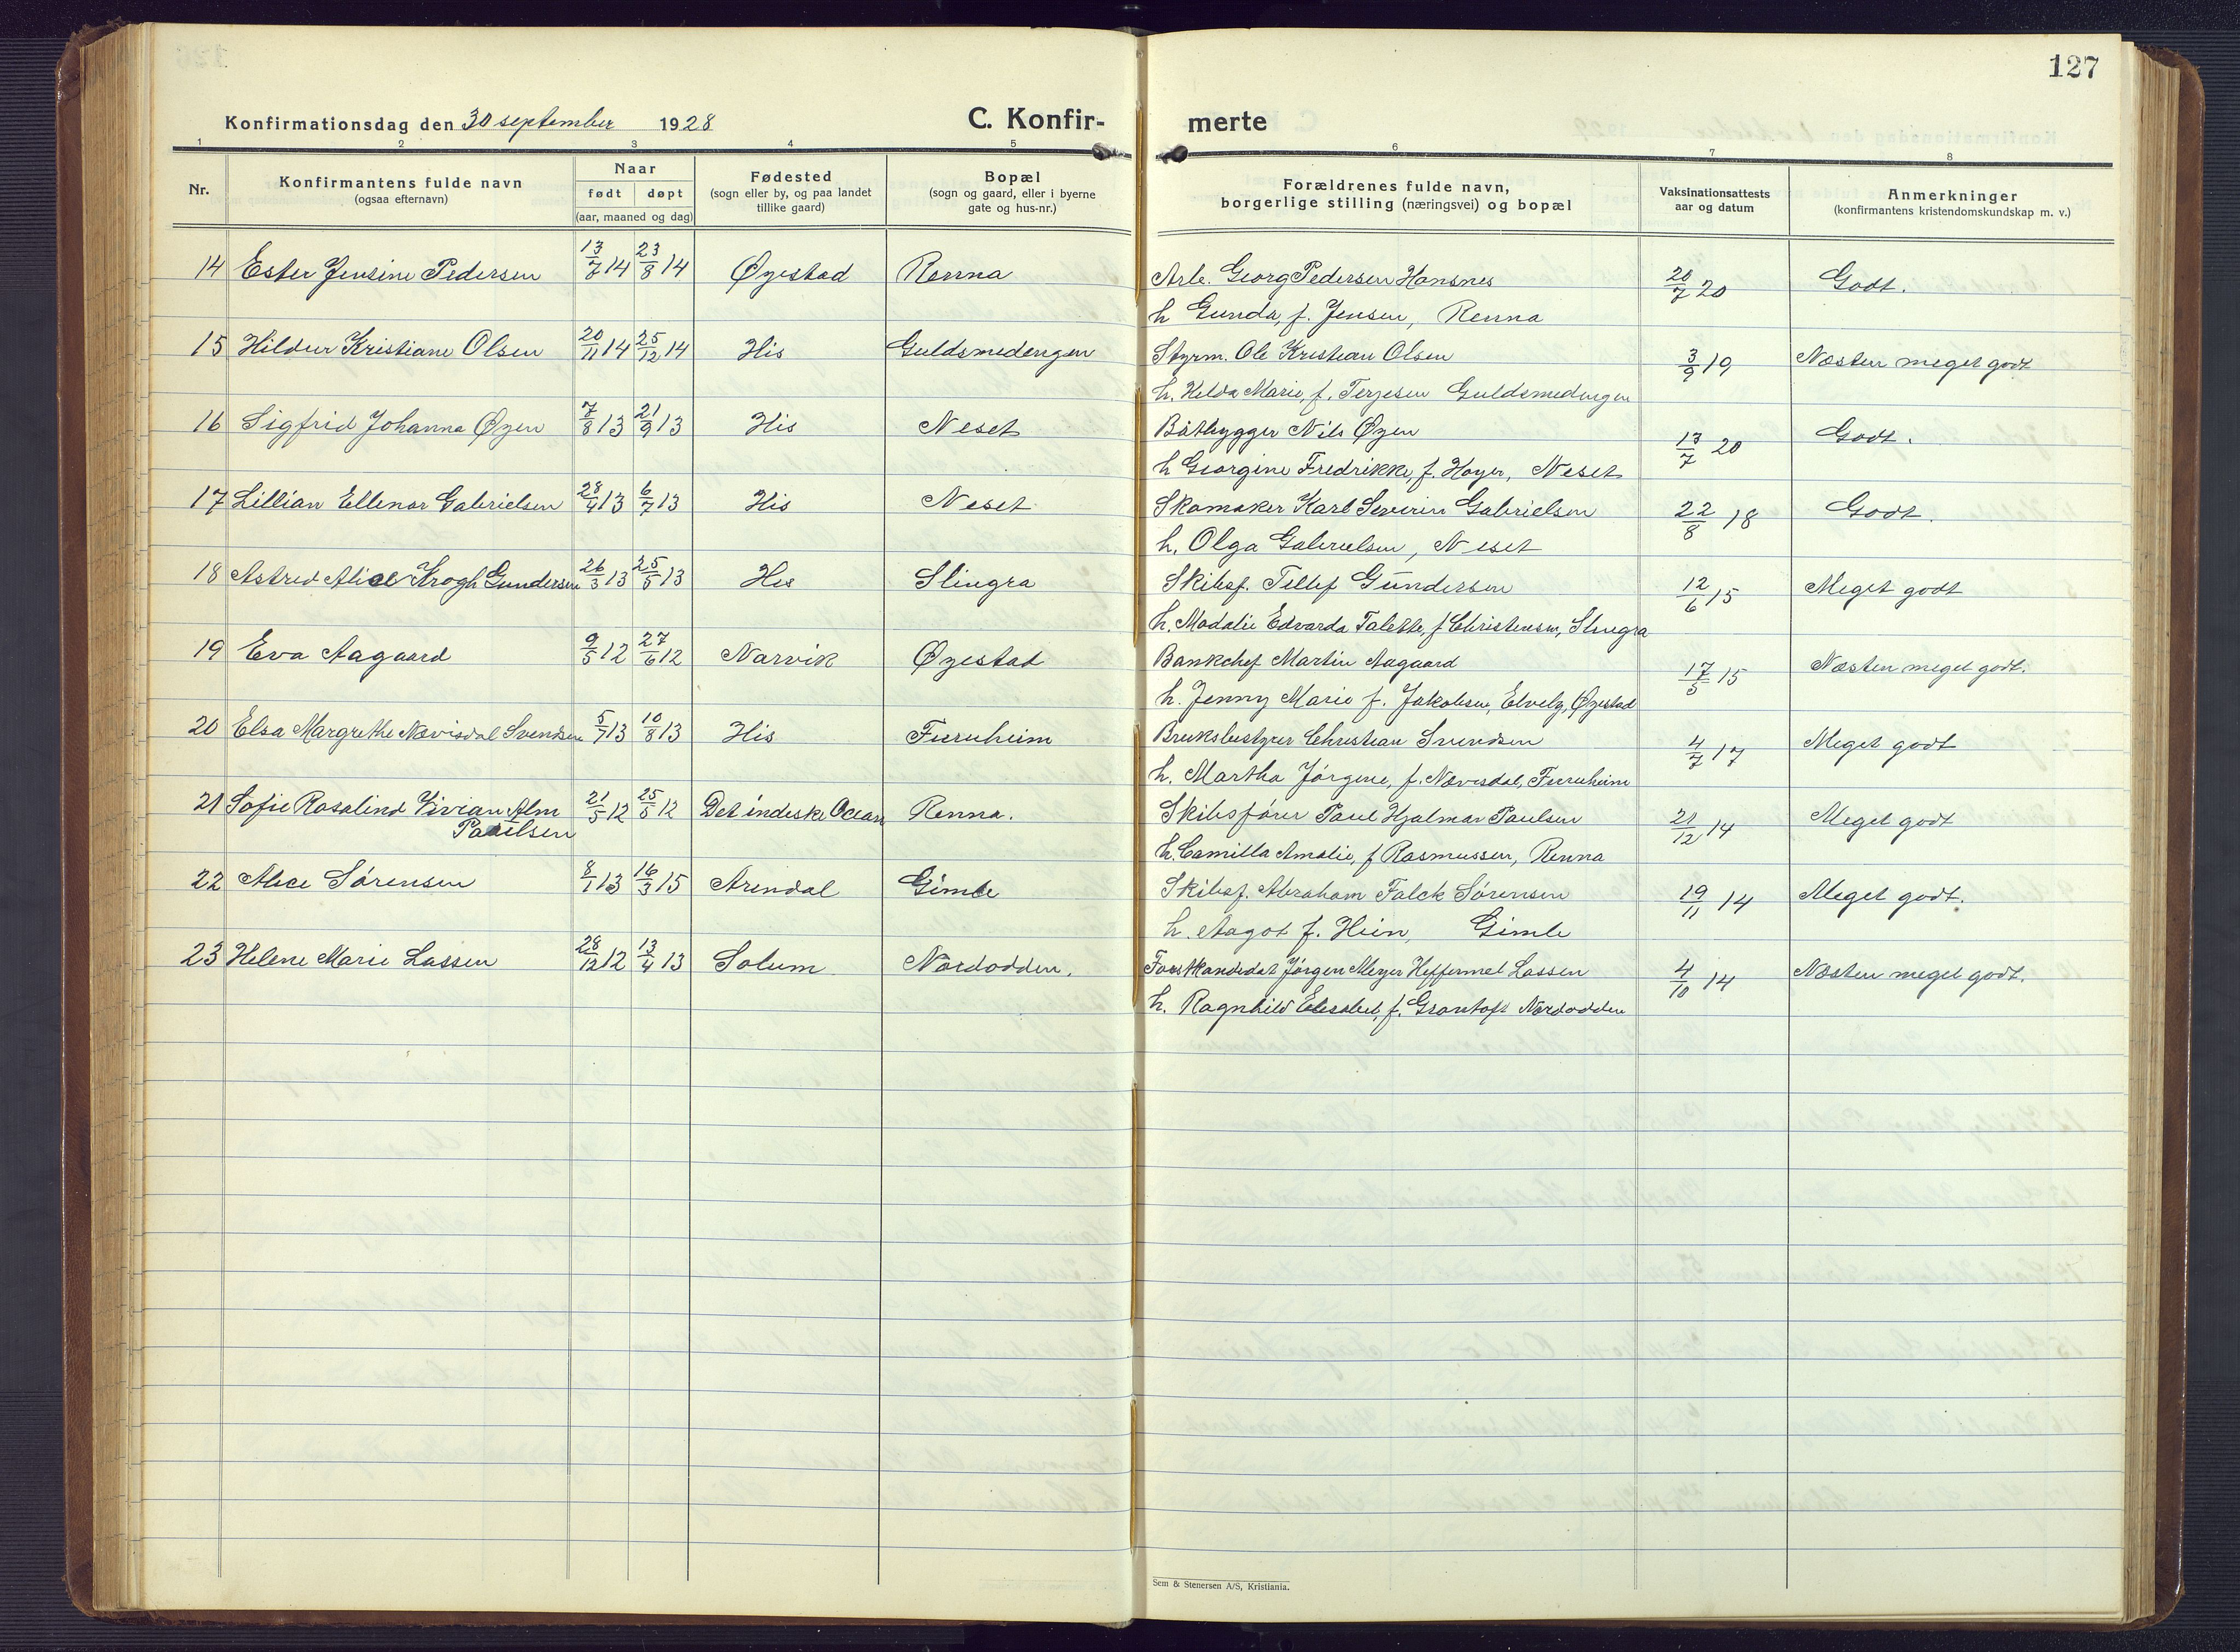 127
Konfirmationsdag den 30 september 1928
C. Konfir- merte
1 2 3 4 5 6 7 8
Nr.
Konfirmantens fulde navn
(ogsaa efternavn)
Naar
født døpt
(aar, maaned og dag)
Fødested
(sogn eller by, og paa landet
tillike gaard)
Bopæl
(sogn og gaard, eller i byerne
gate og hus-nr.)
Forældrenes fulde navn,
borgerlige stilling (næringsvei) og bopæl
Vaksinationsattests
aar og datum
Anmerkninger
(konfirmantens kristendomskundskap m. v.)
14 Ester Jensine Pedersen 13/7 14 23/8 14 Øyestad Renna Arb. Georg Pedersen Hansnes 20/7 20 Godt.
h Gunda, f. Jensen, Renna
15 Hildur Kristiane Olsen 20/11 14 25/12 14 His Guldsmedengen Styrm. Ole Kristian Olsen 3/9 19 Næsten meget godt
h. Hilda Marie, f. Terjesen Guldsmedengen
16 Sigfrid Johanna Øyen 7/8 13 21/9 13 His Neset Båtbygger Nils Øyen 13/7 20 Godt.
h Georgine Fredrikke, f. Høyer, Neset
17 Lillian Ellenor Gabrielsen 28/4 13 6/7 13 His Neset Skomaker Karl Severin Gabrielsen 22/8 18 Godt.
h. Olga Gabrielsen, Neset
18 Astrid Alice Krogh Gundersen 26/3 13 25/5 13 His Slingra Skibsf. Tellef Gundersen 12/6 15 Meget godt
h. Madalie Edvarda Talette, f Christensen, Slingra
19 Eva Aagaard 9/5 12 27/6 12 Narvik Øyestad Bankchef Martin Aagaard 17/5 15 Næsten meget godt.
h. Jenny Marie f. Jakobsen, Elvely, Øyestad
20 Elsa Margrethe Nævisdal Svendsen 5/7 13 10/8 13 His Furuheim Bruksbestyrer Christian Svendsen 4/7 17 Meget godt
h. Martha Jørgine, f. Nævisdal, Furuheim
21 Sofie Rosalind Vivian Alm 21/5 12 25/5 12 Det indiske Ocean Renna. Skibsfører Paul Hjalmar Paulsen 21/12 14 Meget godt
Paulsen h. Camilla Amalie, f Rasmussen, Renna
22 Alice Sørensen 8/1 13 16/3 15 Arendal Gimle Skibsf. Abraham Falck Sørensen 19/11 14 Meget godt.
h. Aagot f. Hein, Gimle
23 Helene Marie Lassen 28/12 12 13/4 13 Solum Nordodden. Forstkandidat Jørgen Meyer Heffermel Lassen 4/10 14 Næsten meget godt.
h. Ragnhild Elisabet, f. Grontoft Nordodden
Sem & Stenersen A/S, Kristiania.